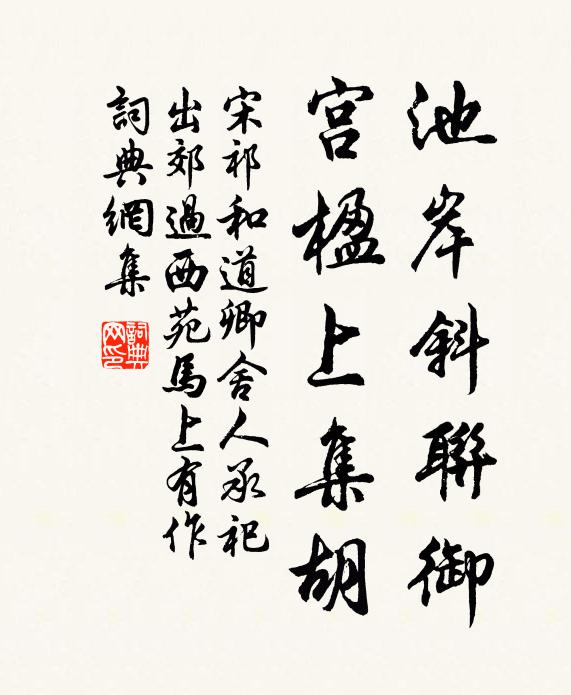 池岸斜聯御
宮楹上集胡
宋祁和道卿舍人承祀
出郊過西苑馬上有作
詞典網集
詞典網印